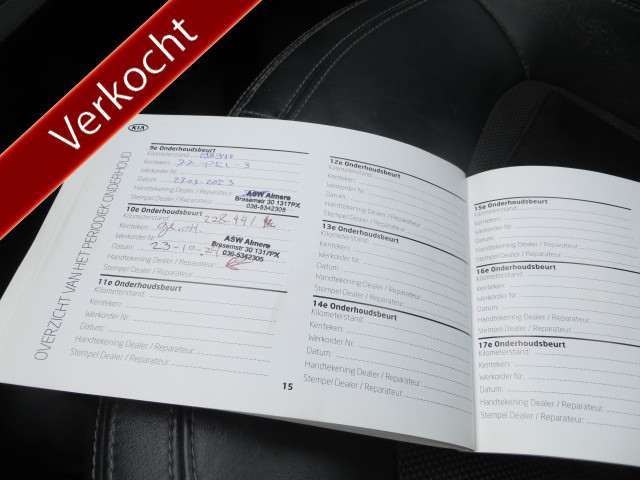 Verkocht
KIA
OVERZICHT VAN HET PERIODIEK ONDERHOUD
9e Onderhoudsbeurt
Kilometerstand:
Kenteken:
Werkorder Nr:
Datum: 27-03-2023
Handtekening Dealer / Reparateur:
Stempel Dealer / Reparateur:
ASW Almere
Brasemstr 30 1317PX
036-5342305
10e Onderhoudsbeurt
Kilometerstand: 228.441
Kenteken:
Werkorder Nr:
Datum: 23-10-24
Handtekening Dealer / Reparateur:
Stempel Dealer / Reparateur:
ASW Almere
Brasemstr 30 1317PX
036-5342305
11e Onderhoudsbeurt
Kilometerstand:
Kenteken:
Werkorder Nr:
Datum:
Handtekening Dealer / Reparateur:
Stempel Dealer / Reparateur:
15
12e Onderhoudsbeurt
Kilometerstand:
Kenteken:
Werkorder Nr:
Datum:
Handtekening Dealer / Reparateur:
Stempel Dealer / Reparateur:
13e Onderhoudsbeurt
Kilometerstand:
Kenteken:
Werkorder Nr:
Datum:
Handtekening Dealer / Reparateur:
Stempel Dealer / Reparateur:
14e Onderhoudsbeurt
Kilometerstand:
Kenteken:
Werkorder Nr:
Datum:
Handtekening Dealer / Reparateur:
Stempel Dealer / Reparateur:
15e Onderhoudsbeurt
Kilometerstand:
Kenteken:
Werkorder Nr:
Datum:
Handtekening Dealer / Reparateur:
Stempel Dealer / Reparateur:
16e Onderhoudsbeurt
Kilometerstand:
Kenteken:
Werkorder Nr:
Datum:
Handtekening Dealer / Reparateur:
Stempel Dealer / Reparateur:
17e Onderhoudsbeurt
Kilometerstand:
Kenteken:
Werkorder Nr:
Datum:
Handtekening Dealer / Reparateur:
Stempel Dealer / Reparateur: